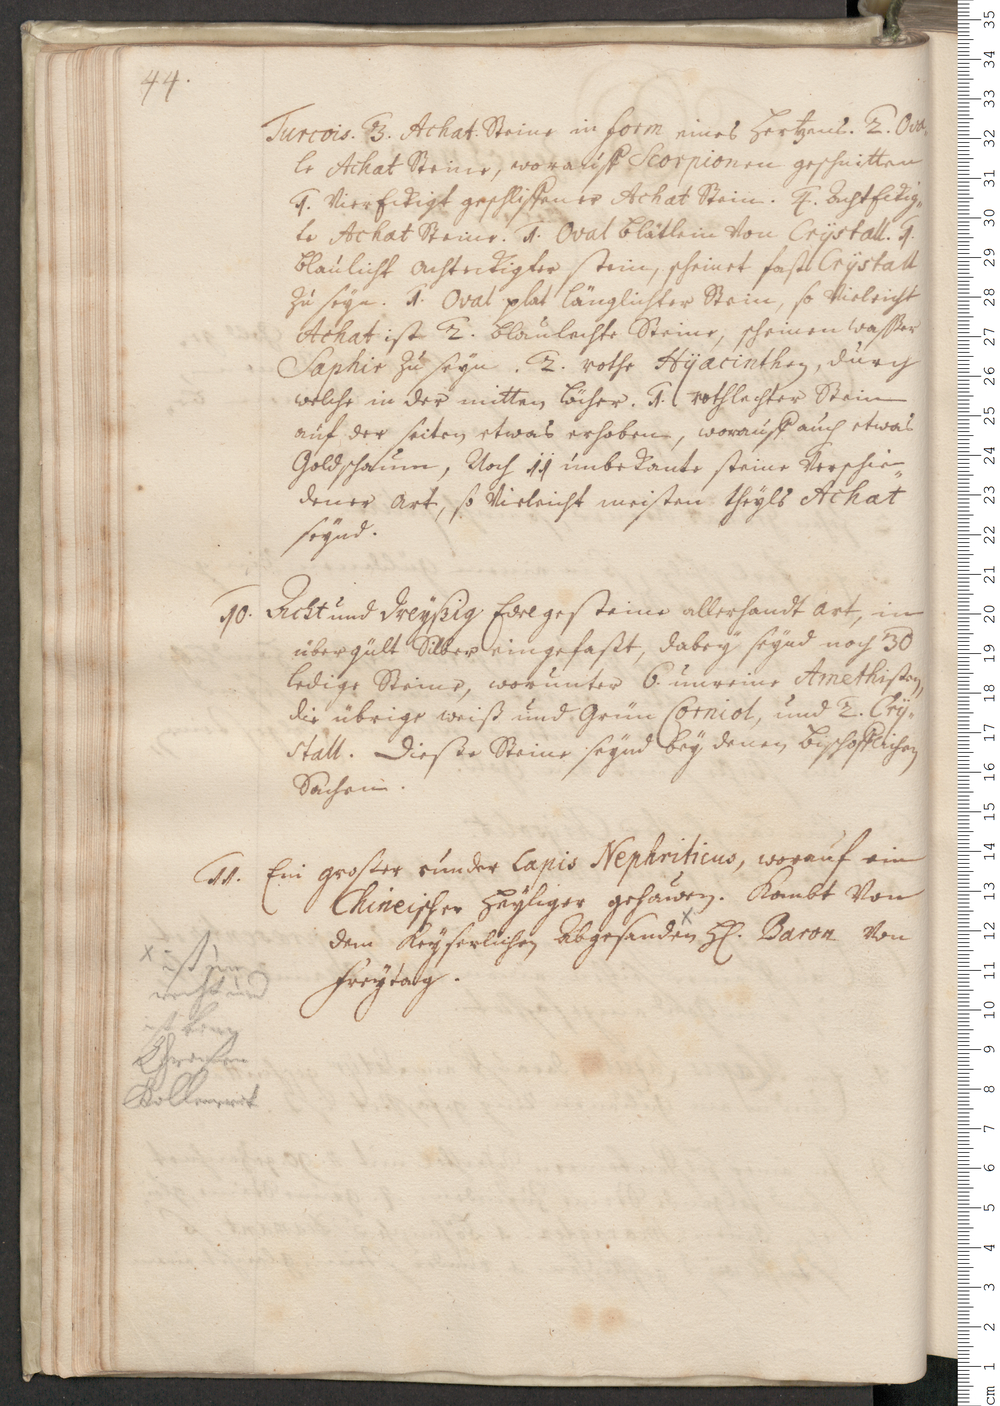 44.
Turcois. 3. Achat Steine in form eines Hertzens. 2. Ova-
le Achat Steine, worauff Scorpionen geschnitten
1. Viereckigt geschliffener Achat Stein. 4. Achteckig-
te Achat Steine. 1. Oval blätlein von Crÿstall. 1.
blaulicht achteckigter stein, scheinet fast Crÿstall
zu seyn. 1. Oval plat länglichter Stein, so Vieleicht
Achat ist 2. blaulechte Steine, scheinen wasser
Saphir zu seyn. 2. rothe Hÿacinthen, durch
welche in der mitten löcher. 1. rothlechter Stein
auf der seiten etwas erhoben, worauff auch etwas
Goldschaum, Noch 11 unbekante steine Verschie-
dener Art, so Vieleicht meisten theÿls Achat
seÿnd.
10. Acht und dreÿßig Edelgesteine allerhandt Art, in
übergült Silber eingefaßt, dabeÿ seÿnd noch 30
ledige Steine, worunter 6 unreine Amethisten,
die übrige weiß und Grün Corniol, und 2. Crÿ-
stall. Dieße Steine seÿnd beÿ denen bischofflichen
Sachen.
11. Ein großer runder Lapis Nephriticus, worauf ein
Chineischer Heÿliger gehauen. Kombt Von
dem Keÿserlichen Abgesanden x H. Baron Von
Freÿtag.
x
ist
recht und
ist
Kollenwerck
35
34
33
32
31
30
29
28
27
26
25
24
23
22
21
20
19
18
17
16
15
14
13
12
11
10
9
8
7
6
5
4
3
2
1
cm